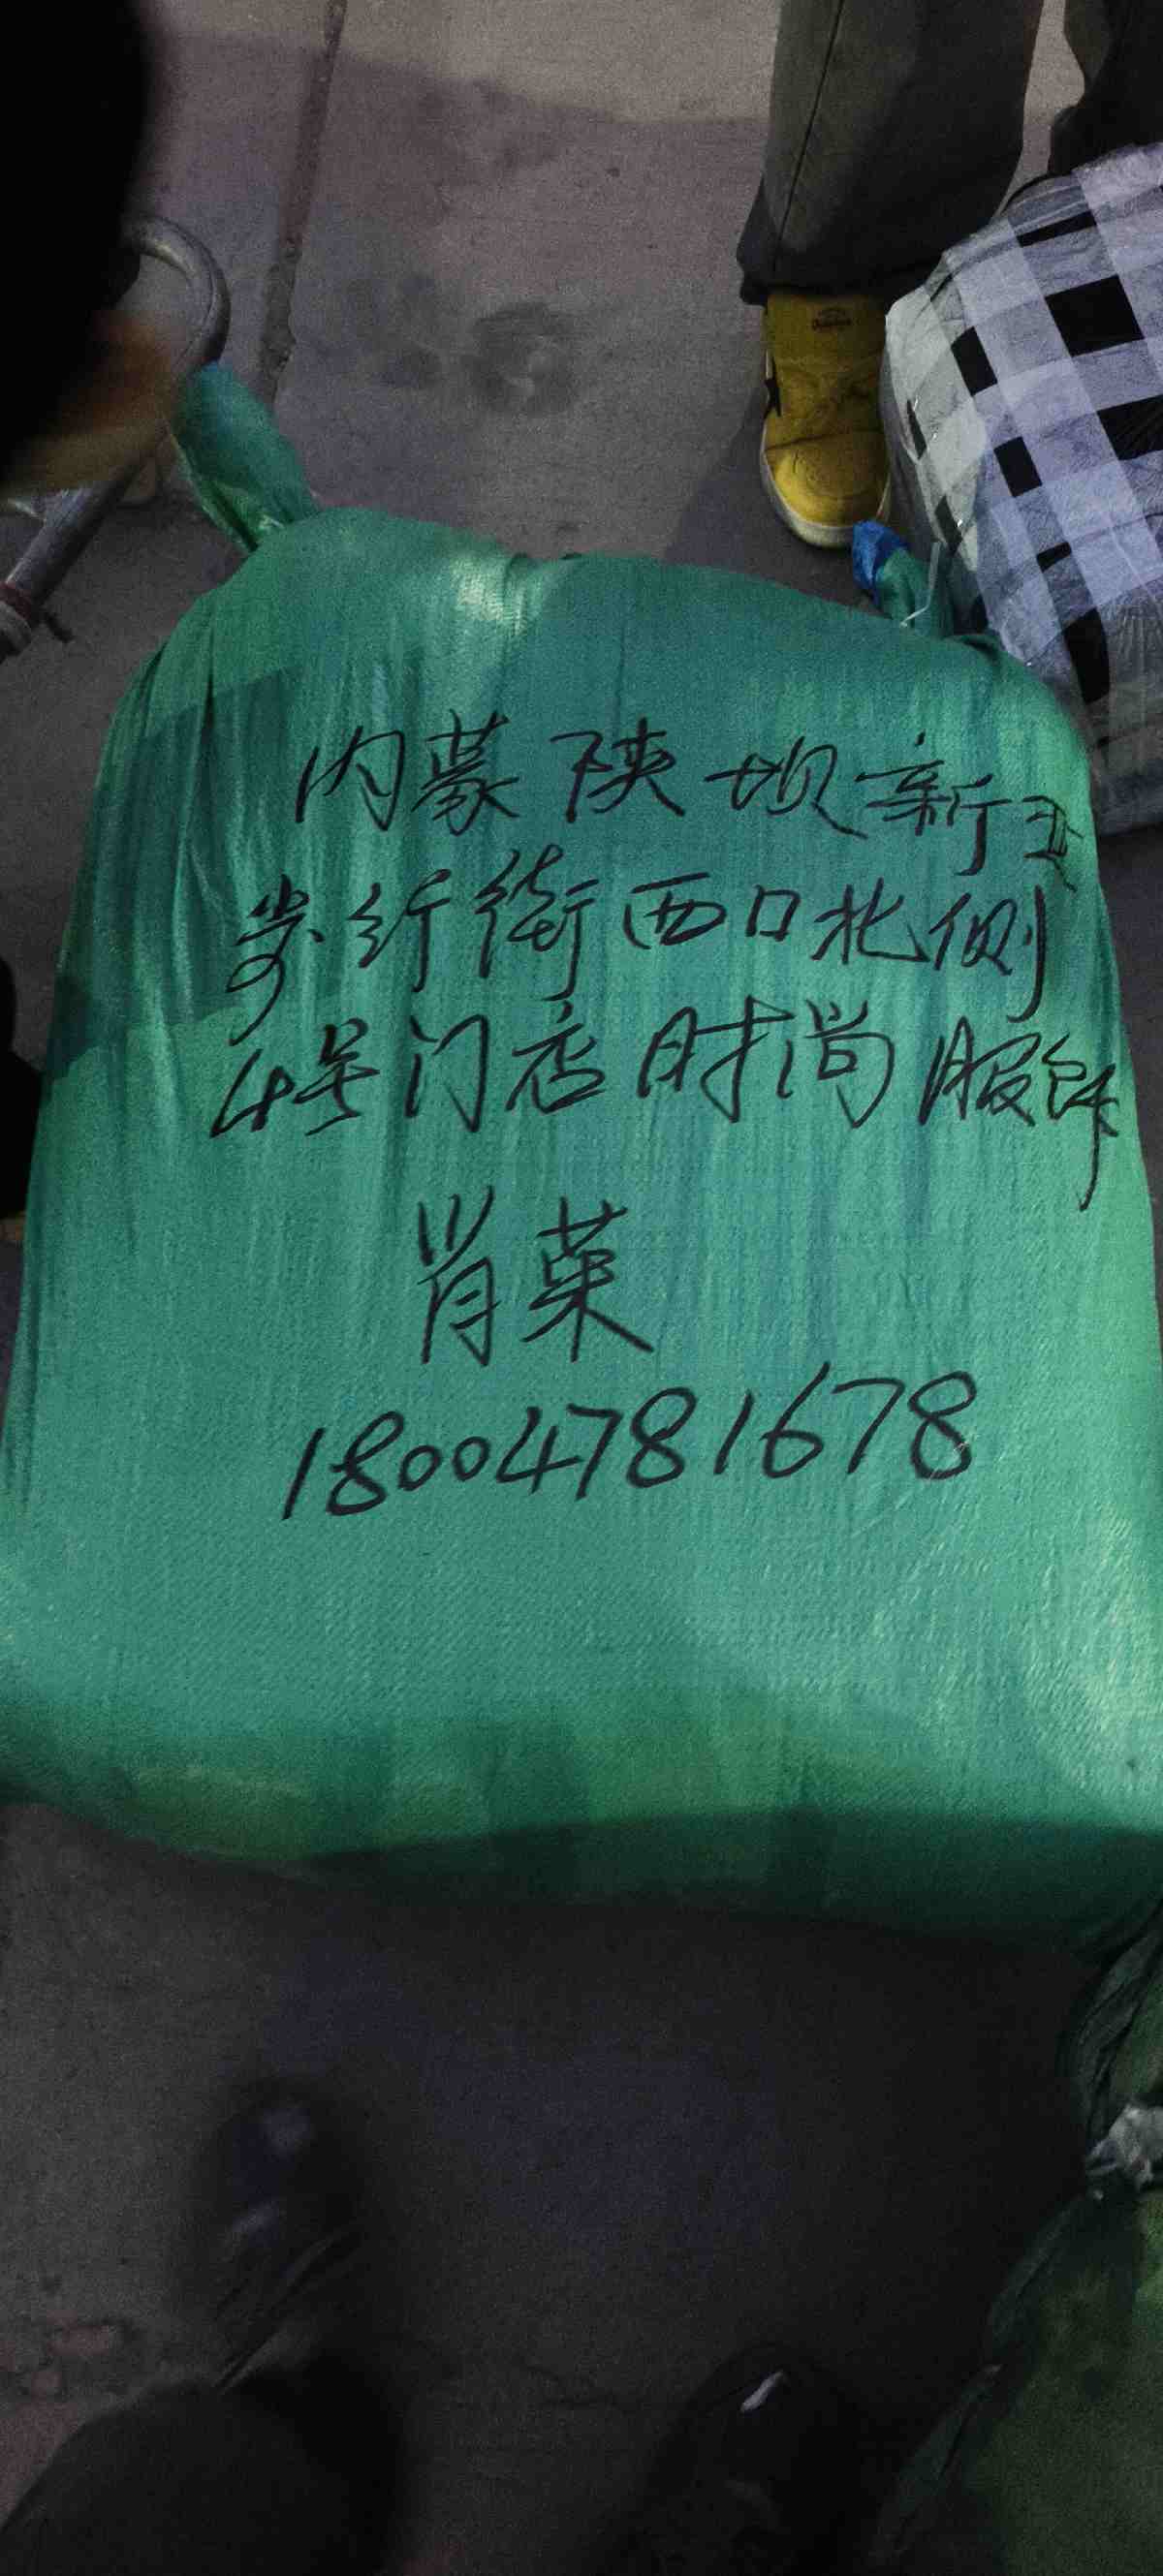 内蒙陕坝新亚
步行街西口北侧
4号门店时尚服饰
肖菜
18004781678